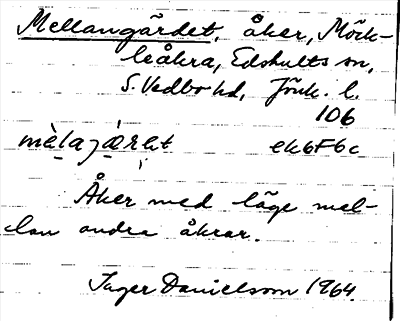 Mellangärdet, åker, Möck-
leåkra, Edshults sn,
S. Vedbo hd, Jönk. l.
106
ek6F6c
Åker med läge mel-
lan andra åkrar.
Inger Danielsson 1964